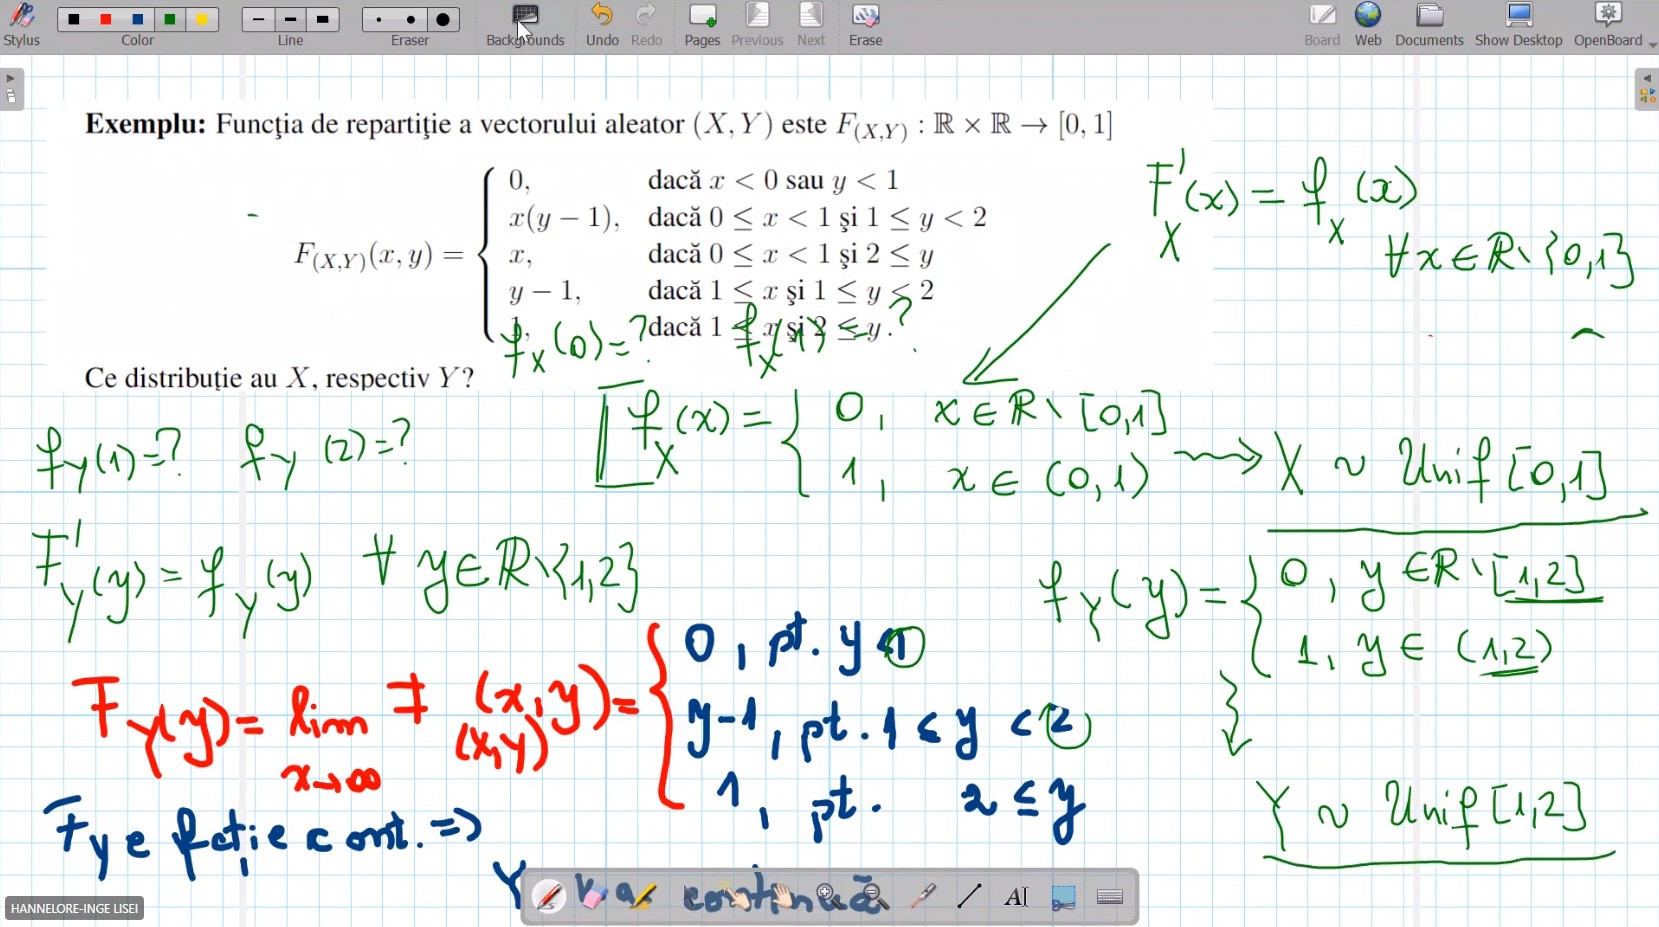 Stylus Color Line Eraser Backgrounds Undo Redo Pages Previous Next Erase Board Web Documents Show Desktop OpenBoard
Exemplu: Funcţia de repartiţie a vectorului aleator (X, Y) este F(X,Y) : ℝ × ℝ → [0, 1]
F(X,Y)(x, y) = {
0, dacă x < 0 sau y < 1
x(y − 1), dacă 0 ≤ x < 1 şi 1 ≤ y < 2
x, dacă 0 ≤ x < 1 şi 2 ≤ y
y − 1, dacă 1 ≤ x şi 1 ≤ y < 2
1, dacă 1 ≤ x şi 2 ≤ y.
Ce distribuţie au X, respectiv Y?
F'X(x) = fX(x)
∀ x ∈ ℝ \ {0,1}
fX(0) = ? fX(1) = ?
fX(x) = { 0, x ∈ ℝ \ [0,1]
1, x ∈ (0,1)
X ~ Unif [0,1]
fY(1) = ? fY(2) = ?
F'Y(y) = fY(y) ∀ y ∈ ℝ \ {1,2}
fY(y) = { 0, y ∈ ℝ \ [1,2]
1, y ∈ (1,2)
Y ~ Unif [1,2]
FY(y) = lim x→∞ F(X,Y)(x,y) = { 0, pt. y < 1
y-1, pt. 1 ≤ y < 2
1, pt. 2 ≤ y
FY e fcţie cont. =>
Y continuă
HANNELORE-INGE LISEI